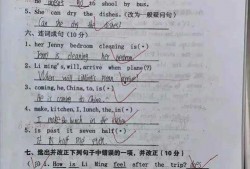 to shool by bus.
5. She can dry the dishes. (改为一般疑问句)
Can she dry the dishes?
六、连词成句 (10 分)
1. her Jenny bedroom cleaning is(.)
Jenny is cleaning her bedroom
2. Li ming's, will, arrive when plane(?)
When will Li Ming's plane arrive?
3. coming, he, China, to, is(.)
He is coming to China.
4. make, kitchen, I, lunch, the, in(.)
I make lunch in the kitchen
5. is past it seven half(.)
It is half past seven
七、选出并改正下列句子中错误的一项，并改正 (10 分)
1. How is Li Ming feel after the trip?